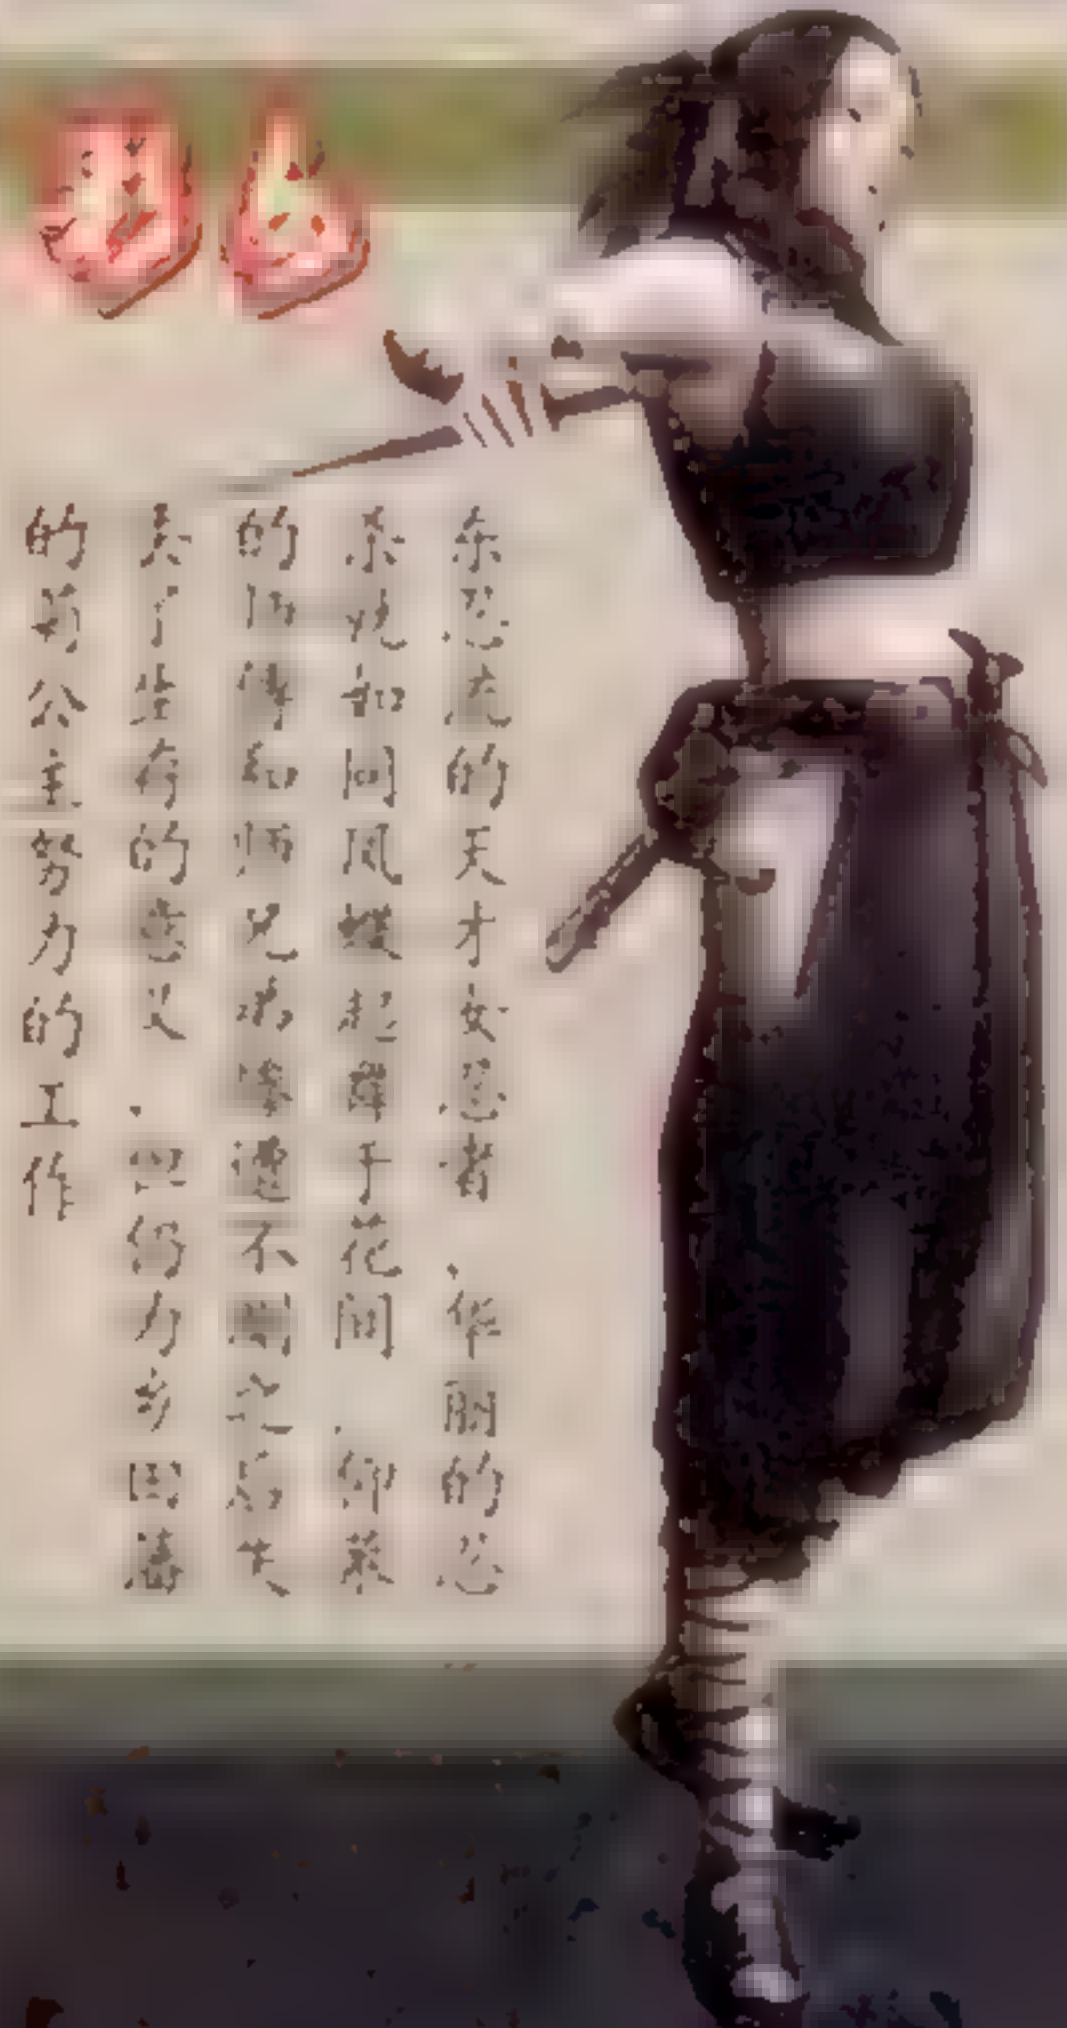 东忍流的天才女忍者、华丽的忍
杀宛如同风蝶起舞于花间、仰慕
的师傅和师兄弟惨遭不测之后失
去了生存的意义、但仍为乡田藩
的菊公主努力的工作